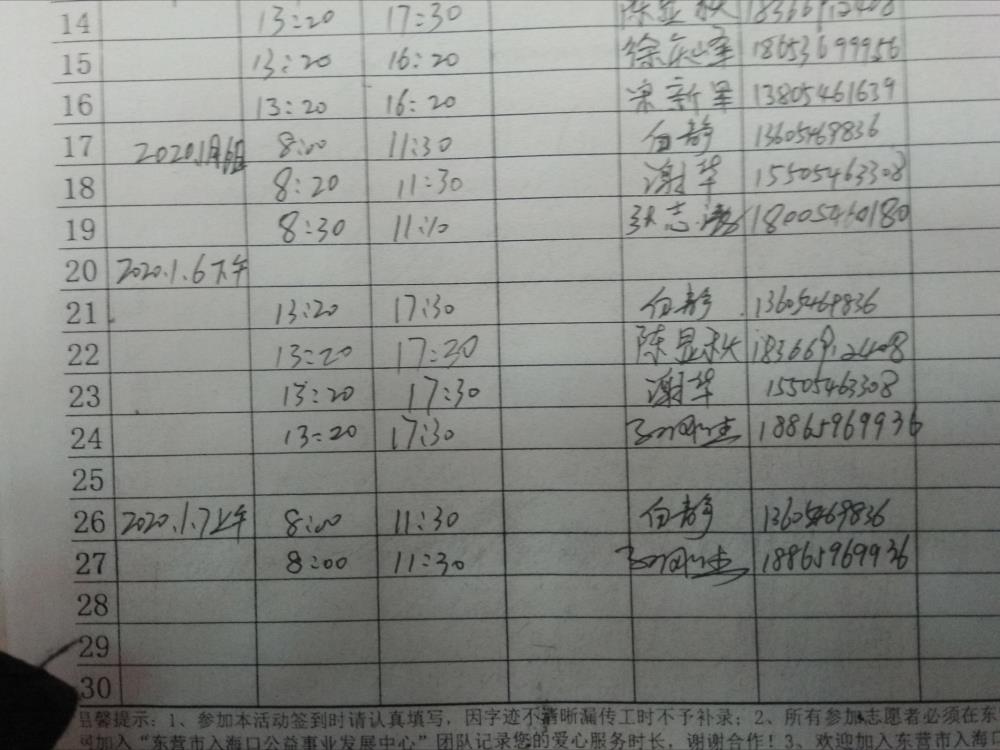 14 13:20 17:30 陈显秋 18366912408
15 13:20 16:20 18653699956
16 13:20 16:20 宋新军 13805461639
17 2020.1月6日 8:00 11:30 白静 13605469836
18 8:20 11:30 谢华 15505463308
19 8:30 11:10 张志海 18005460180
20 2020.1.6下午
21 13:20 17:30 白静 13605469836
22 13:20 17:20 陈显秋 18366912408
23 13:20 17:30 谢华 15505463308
24 13:20 17:30 18865969936
25
26 2020.1.7上午 8:00 11:30 白静 13605469836
27 8:00 11:30 18865969936
28
29
30
温馨提示：1、参加本活动签到时请认真填写，因字迹不清晰漏传工时不予补录；2、所有参加志愿者必须在东
加入“东营市入海口公益事业发展中心”团队记录您的爱心服务时长，谢谢合作！3、欢迎加入东营市入海口